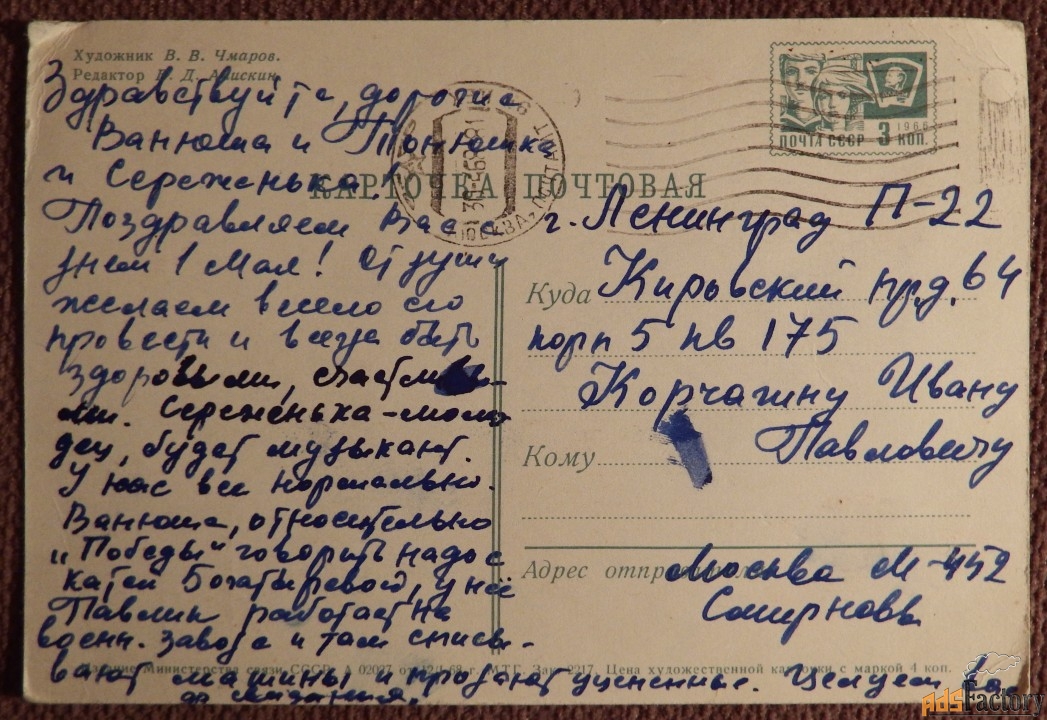 Художник В. В. Чмаров.
Редактор Д.
Здравствуйте, дорогие
Ванюша и Тонюшка
и Сереженька.
Поздравляем Вас с
днем 1 Мая! От души
желаем весело его
провести и всегда быть
здоровыми, счастливы-
ми. Сереженька-моло
дец, будет музыкант.
У нас все нормально.
Ванюша, относительно
"Победы" говорить надо с
Катей Богатыревой, у неё
Павлик работает на
военн. заводе и там списы-
вают машины и продают уцененные. Целуем
КАРТОЧКА ПОЧТОВАЯ
МОСКВА
ПОЧТА СССР 3 КОП.
1966
г. Ленинград П-22
Куда Кировский прд. 64
корп 5 кв 175
Корчагину Ивану
Кому Павловичу
Адрес Москва М-452
Смирновы
Издание Министерства связи СССР. А 02027 от 68 г. МТГ. Зак. 2217. Цена художественной карточки с маркой 4 коп.
AdsFactory